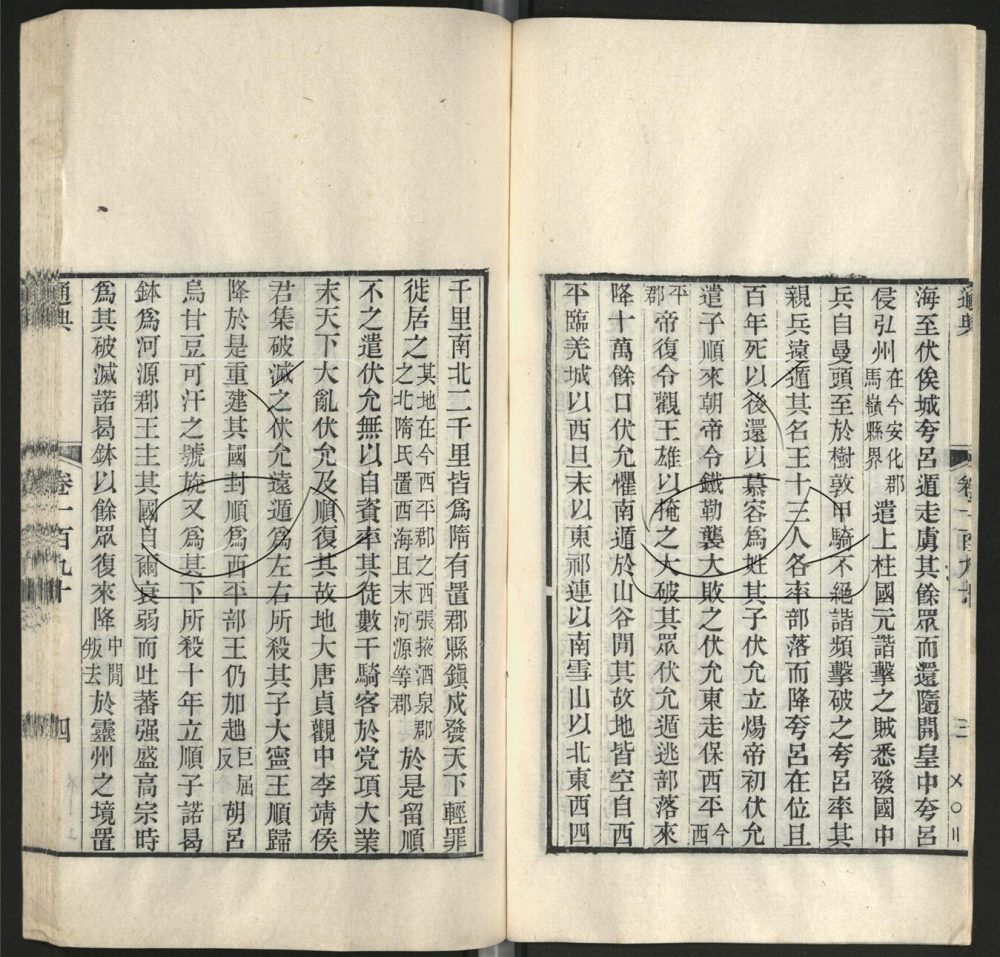 通典
卷一百九十
三
海至伏俟城夸呂遁走虜其餘眾而還隨開皇中夸呂
侵弘州在今安化郡馬嶺縣界遣上柱國元諧擊之賊悉發國中
兵自曼頭至於樹敦甲騎不絕諧頻擊破之夸呂率其
親兵遠遁其名王十三人各率部落而降夸呂在位且
百年死以後還以慕容為姓其子伏允立煬帝初伏允
遣子順來朝帝令鐵勒襲大敗之伏允東走保西平今西
平郡帝復令觀王雄以掩之大破其眾伏允遁逃部落來
降十萬餘口伏允懼南遁於山谷間其故地皆空自西
平臨羌城以西且末以東祁連以南雪山以北東西四
千里南北二千里皆為隋有置郡縣鎮戍發天下輕罪
徙居之其地在今西平郡之西張掖酒泉郡之北隋氏置西海且末河源等郡於是留順
不之遣伏允無以自資率其徒數千騎客於党項大業
末天下大亂伏允及順復其故地大唐貞觀中李靖侯
君集破滅之伏允遠遁為左右所殺其子大寧王順歸
降於是重建其國封順為西平部王仍加趉巨屈反胡呂
烏甘豆可汗之號旋又為其下所殺十年立順子諾曷
鉢為河源郡王主其國自爾衰弱而吐蕃强盛高宗時
為其破滅諾曷鉢以餘眾復來降中間叛去於靈州之境置
通典
卷一百九十
四